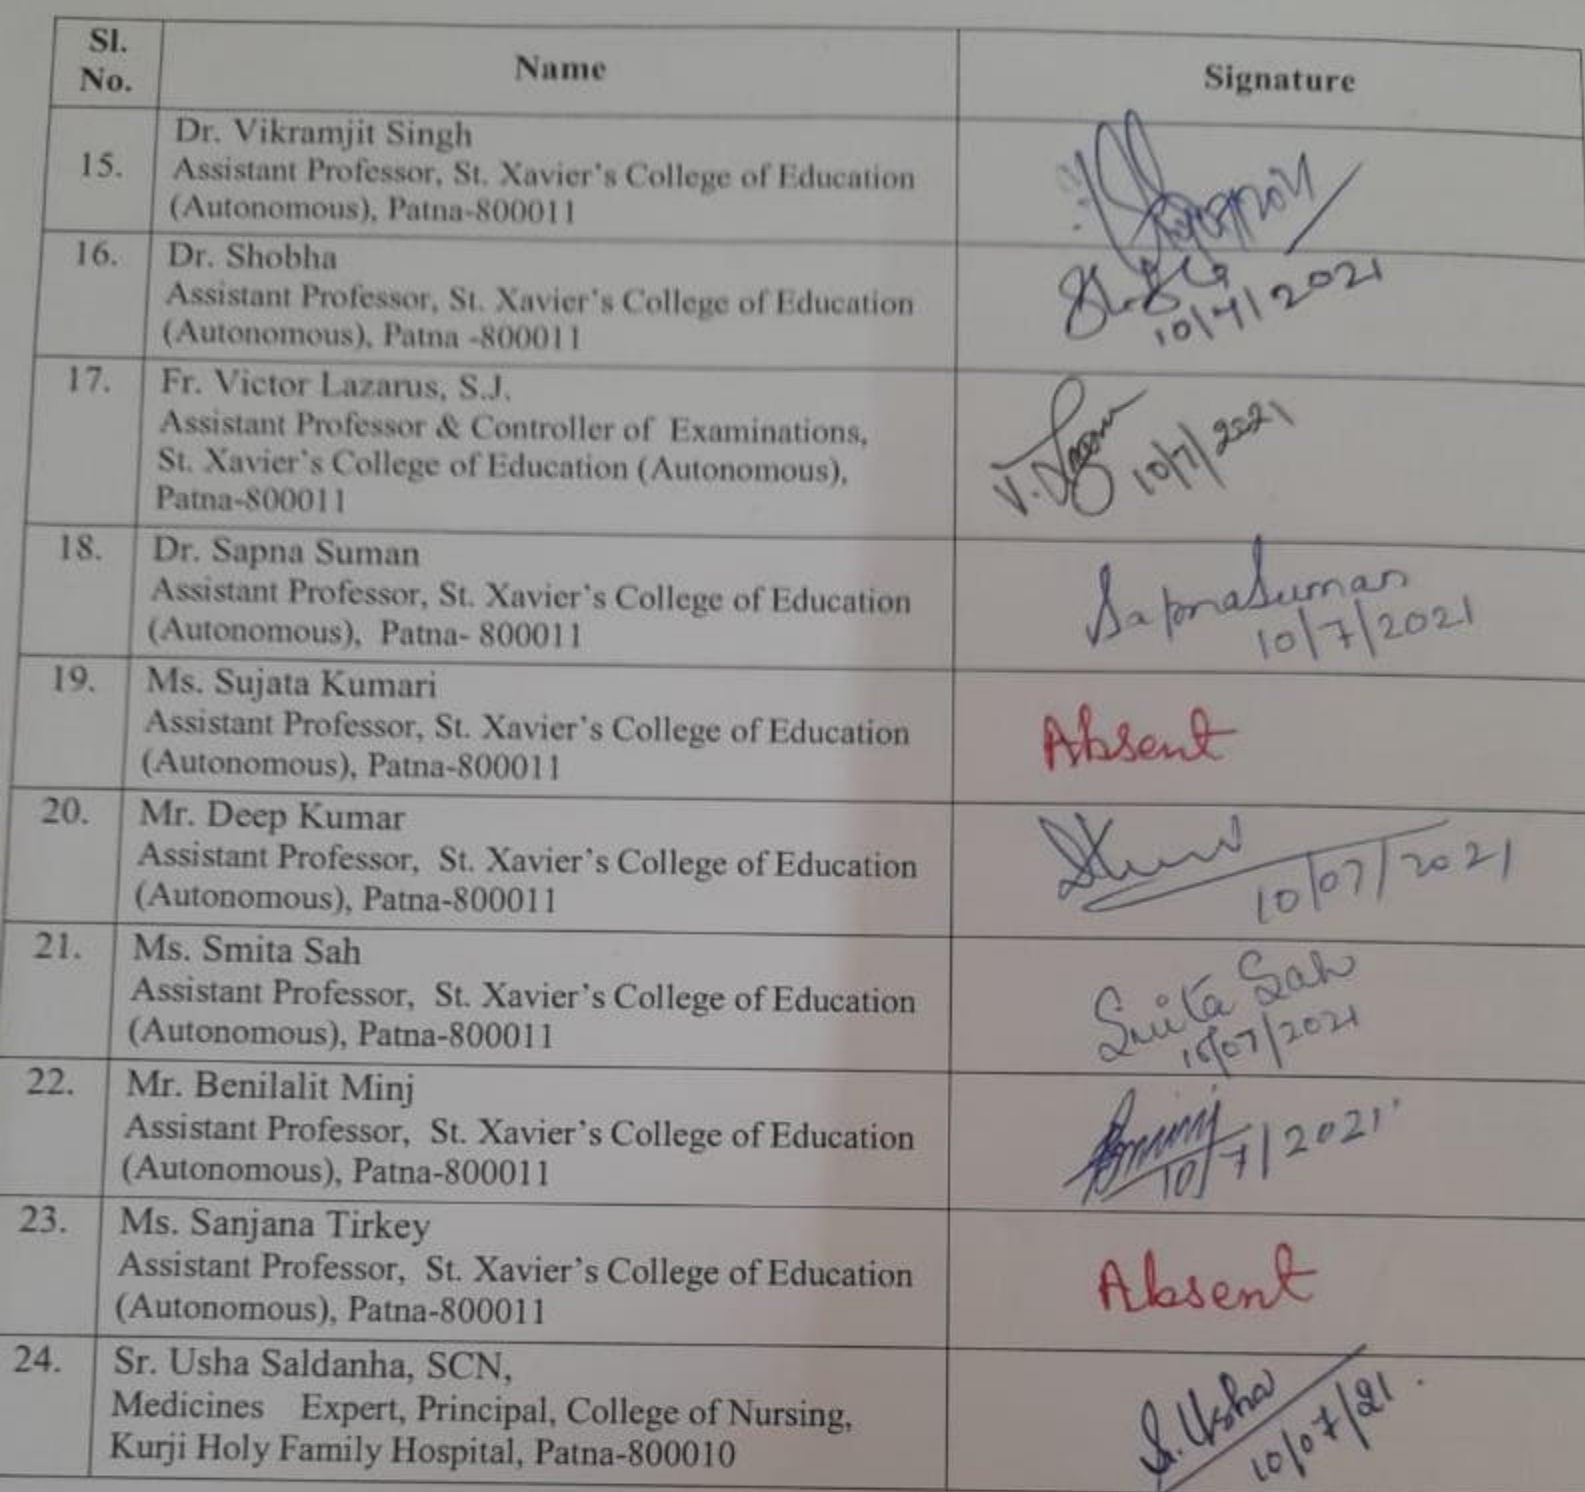 Sl. No. Name Signature
15. Dr. Vikramjit Singh
Assistant Professor, St. Xavier's College of Education
(Autonomous), Patna-800011
16. Dr. Shobha
Assistant Professor, St. Xavier's College of Education
(Autonomous), Patna -800011
10/7/2021
17. Fr. Victor Lazarus, S.J.
Assistant Professor & Controller of Examinations,
St. Xavier's College of Education (Autonomous),
Patna-800011
10/7/2021
18. Dr. Sapna Suman
Assistant Professor, St. Xavier's College of Education
(Autonomous), Patna- 800011
Sapna Suman
10/7/2021
19. Ms. Sujata Kumari
Assistant Professor, St. Xavier's College of Education
(Autonomous), Patna-800011
Absent
20. Mr. Deep Kumar
Assistant Professor, St. Xavier's College of Education
(Autonomous), Patna-800011
10/07/2021
21. Ms. Smita Sah
Assistant Professor, St. Xavier's College of Education
(Autonomous), Patna-800011
Smita Sah
10/07/2021
22. Mr. Benilalit Minj
Assistant Professor, St. Xavier's College of Education
(Autonomous), Patna-800011
Bminj
10/7/2021
23. Ms. Sanjana Tirkey
Assistant Professor, St. Xavier's College of Education
(Autonomous), Patna-800011
Absent
24. Sr. Usha Saldanha, SCN,
Medicines Expert, Principal, College of Nursing,
Kurji Holy Family Hospital, Patna-800010
S. Usha
10/07/21.